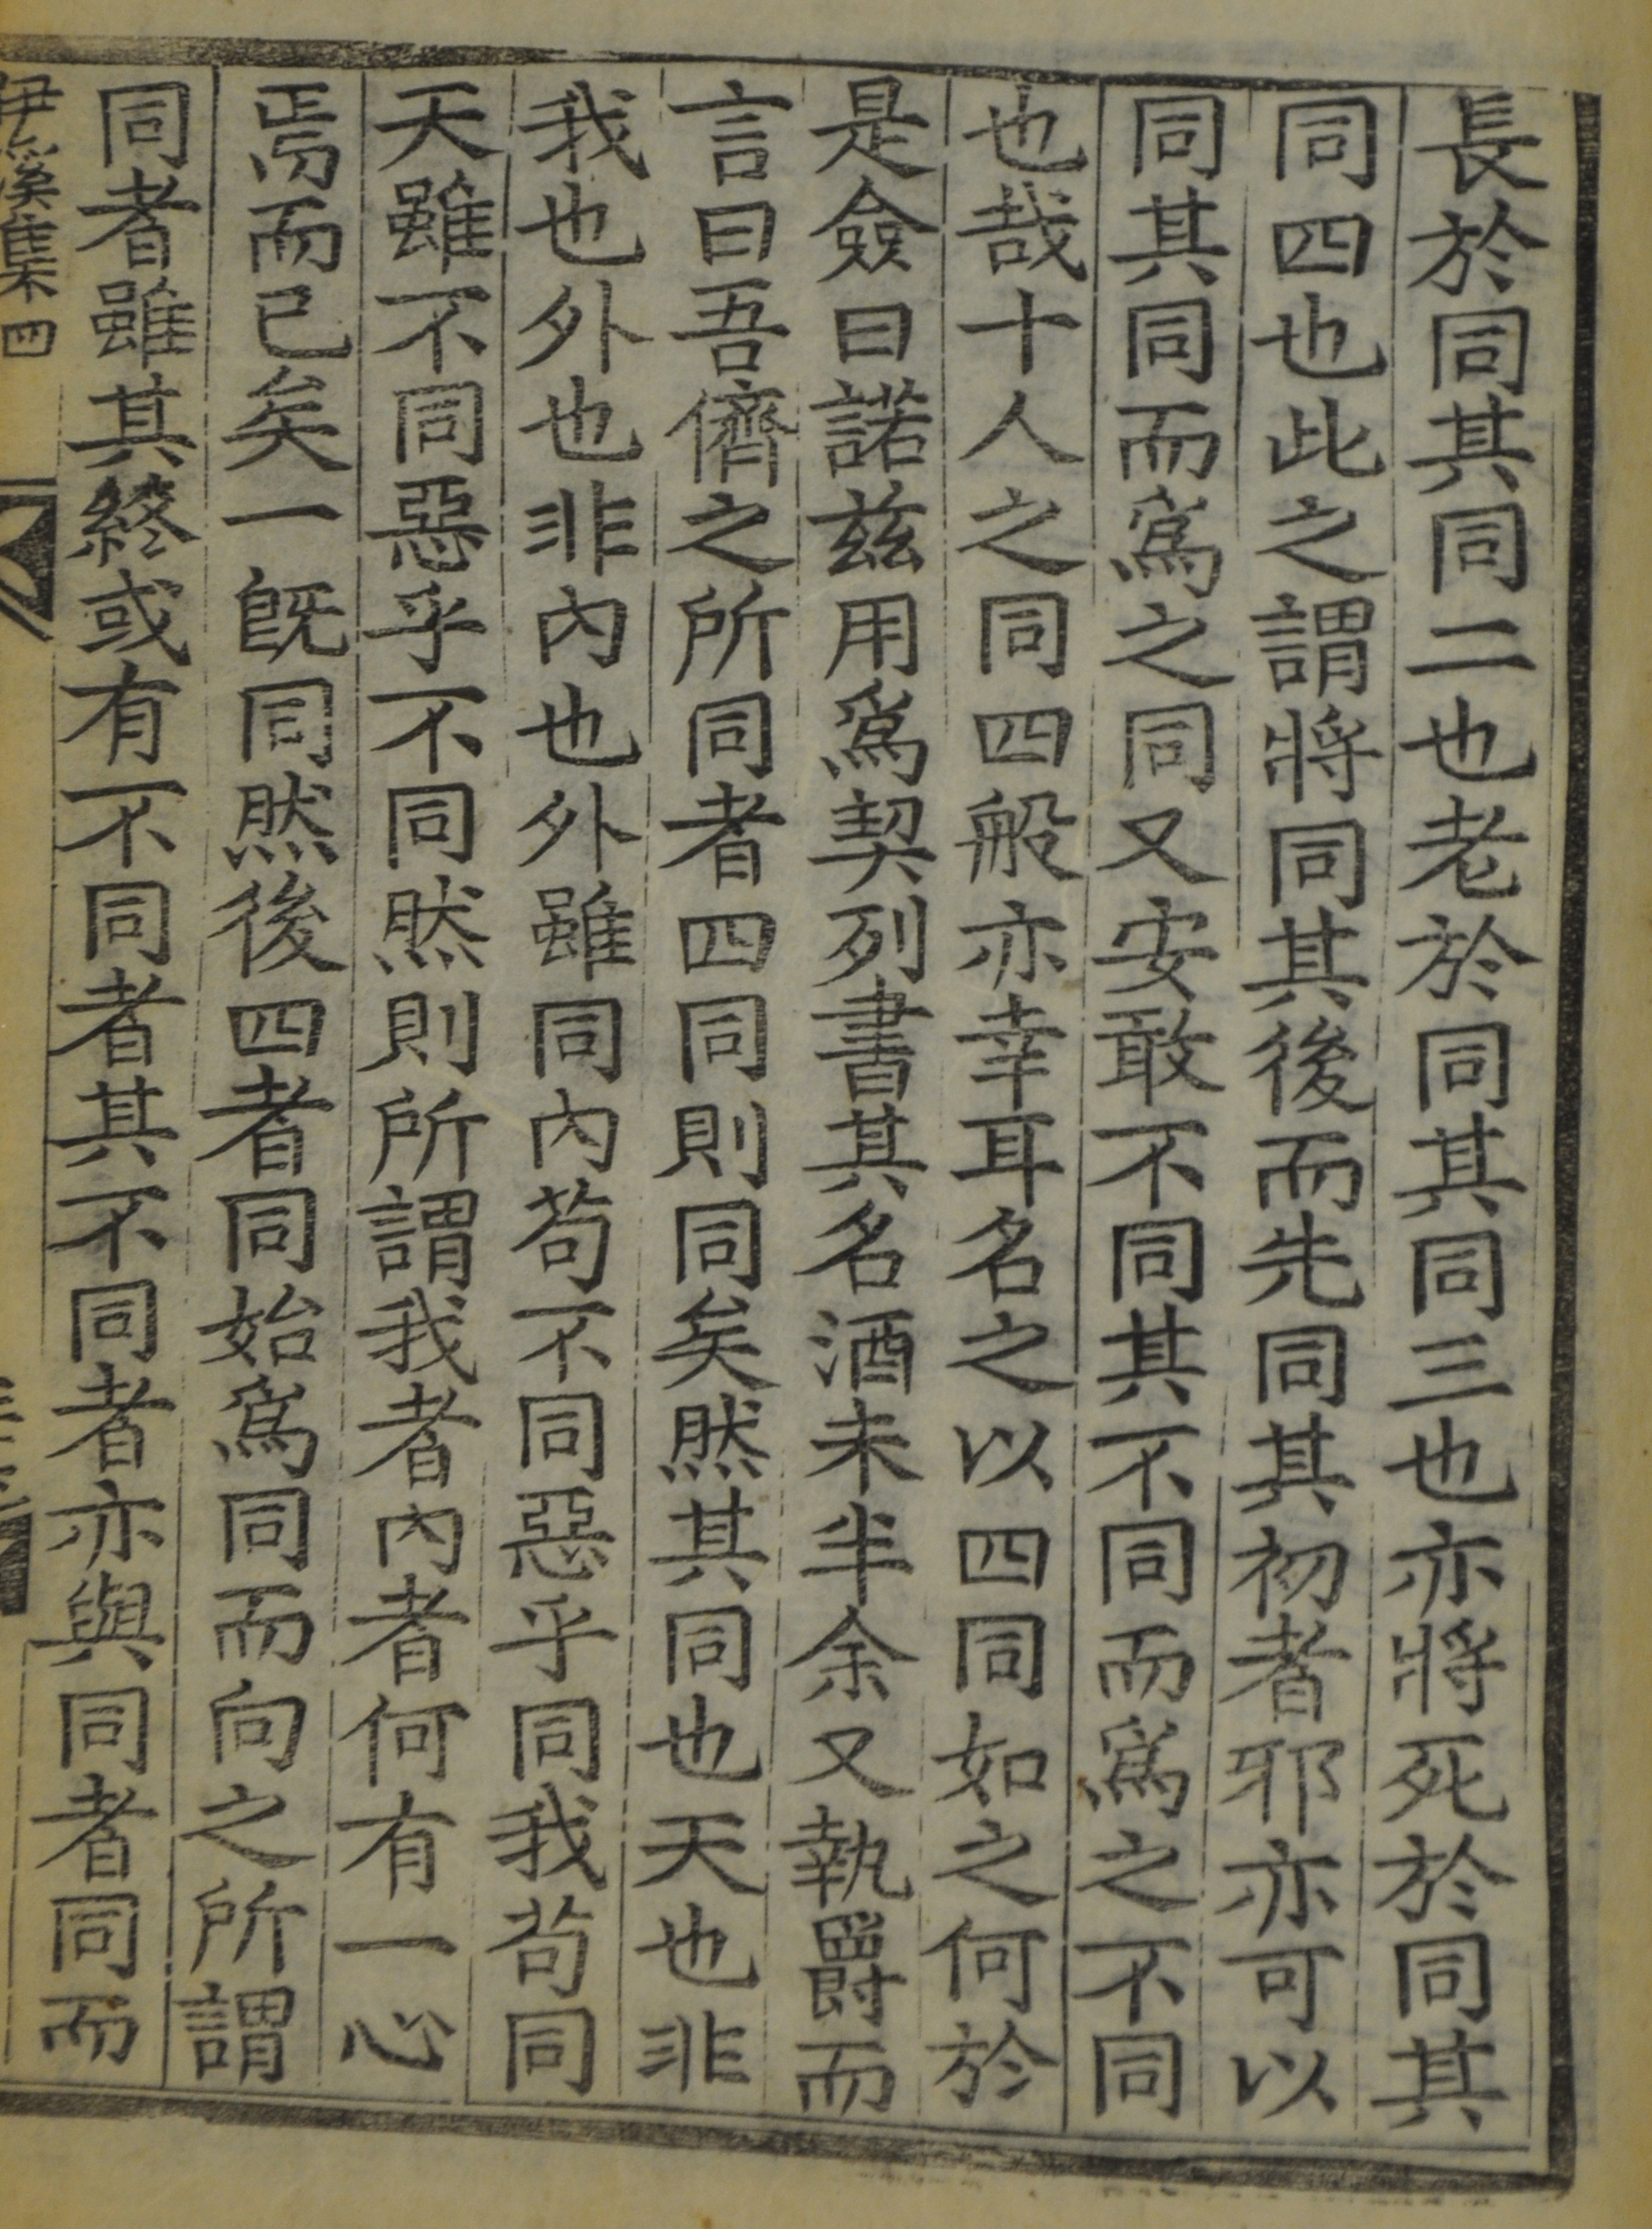 長於同其同二也老於同其同三也亦將死於同其
同四也此之謂將同其後而先同其初者邪亦可以
同其同而爲之同又安敢不同其不同而爲之不同
也哉十人之同四般亦幸耳名之以四同如之何於
是僉曰諾兹用爲契列書其名酒未半余又執爵而
言曰吾儕之所同者四同則同矣然其同也天也非
我也外也非內也外雖同內苟不同惡乎同我苟同
天雖不同惡乎不同然則所謂我者內者何有一心
焉而已矣一旣同然後四者同始爲同而向之所謂
同者雖其終或有不同者其不同者亦與同者同而
伊溪集 四